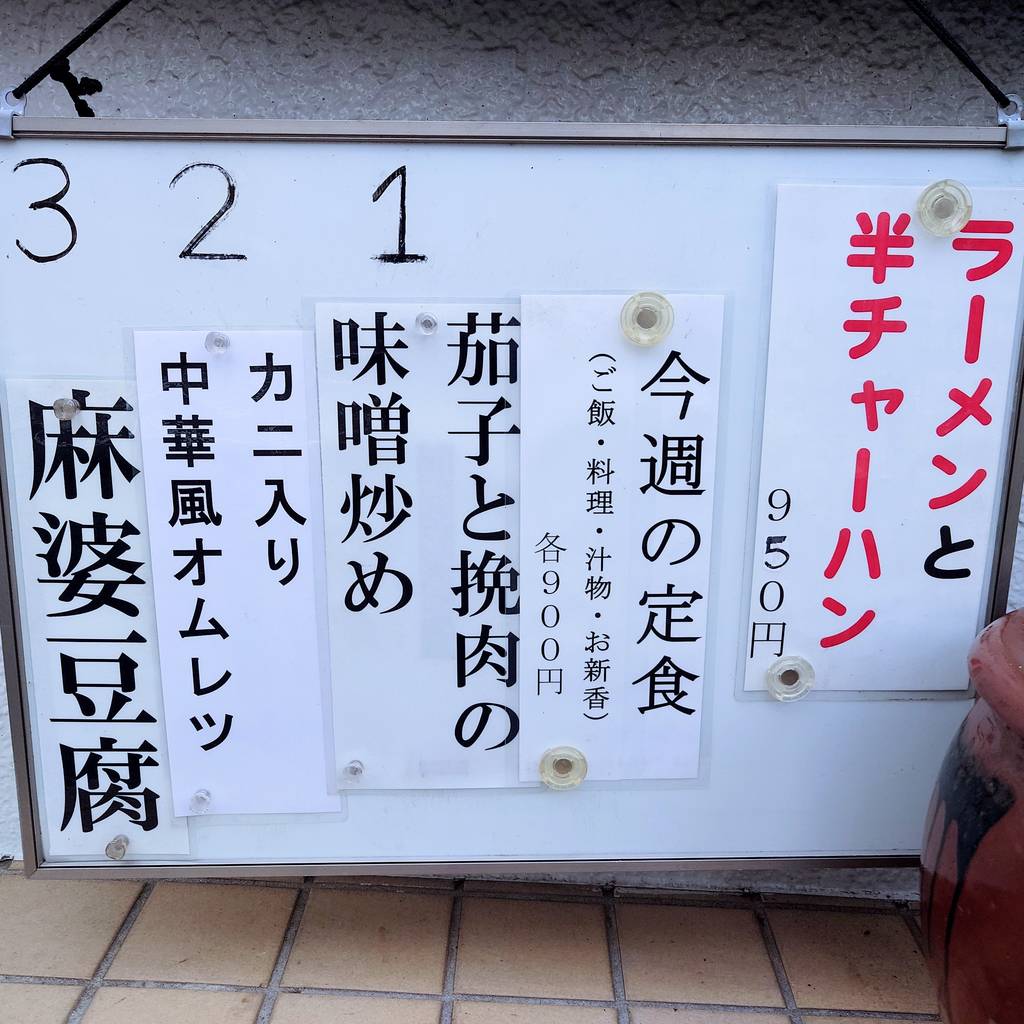 ラーメンと
半チャーハン
950円
今週の定食
（ご飯・料理・汁物・お新香）
各900円
1
茄子と挽肉の
味噌炒め
2
カニ入り
中華風オムレツ
3
麻婆豆腐